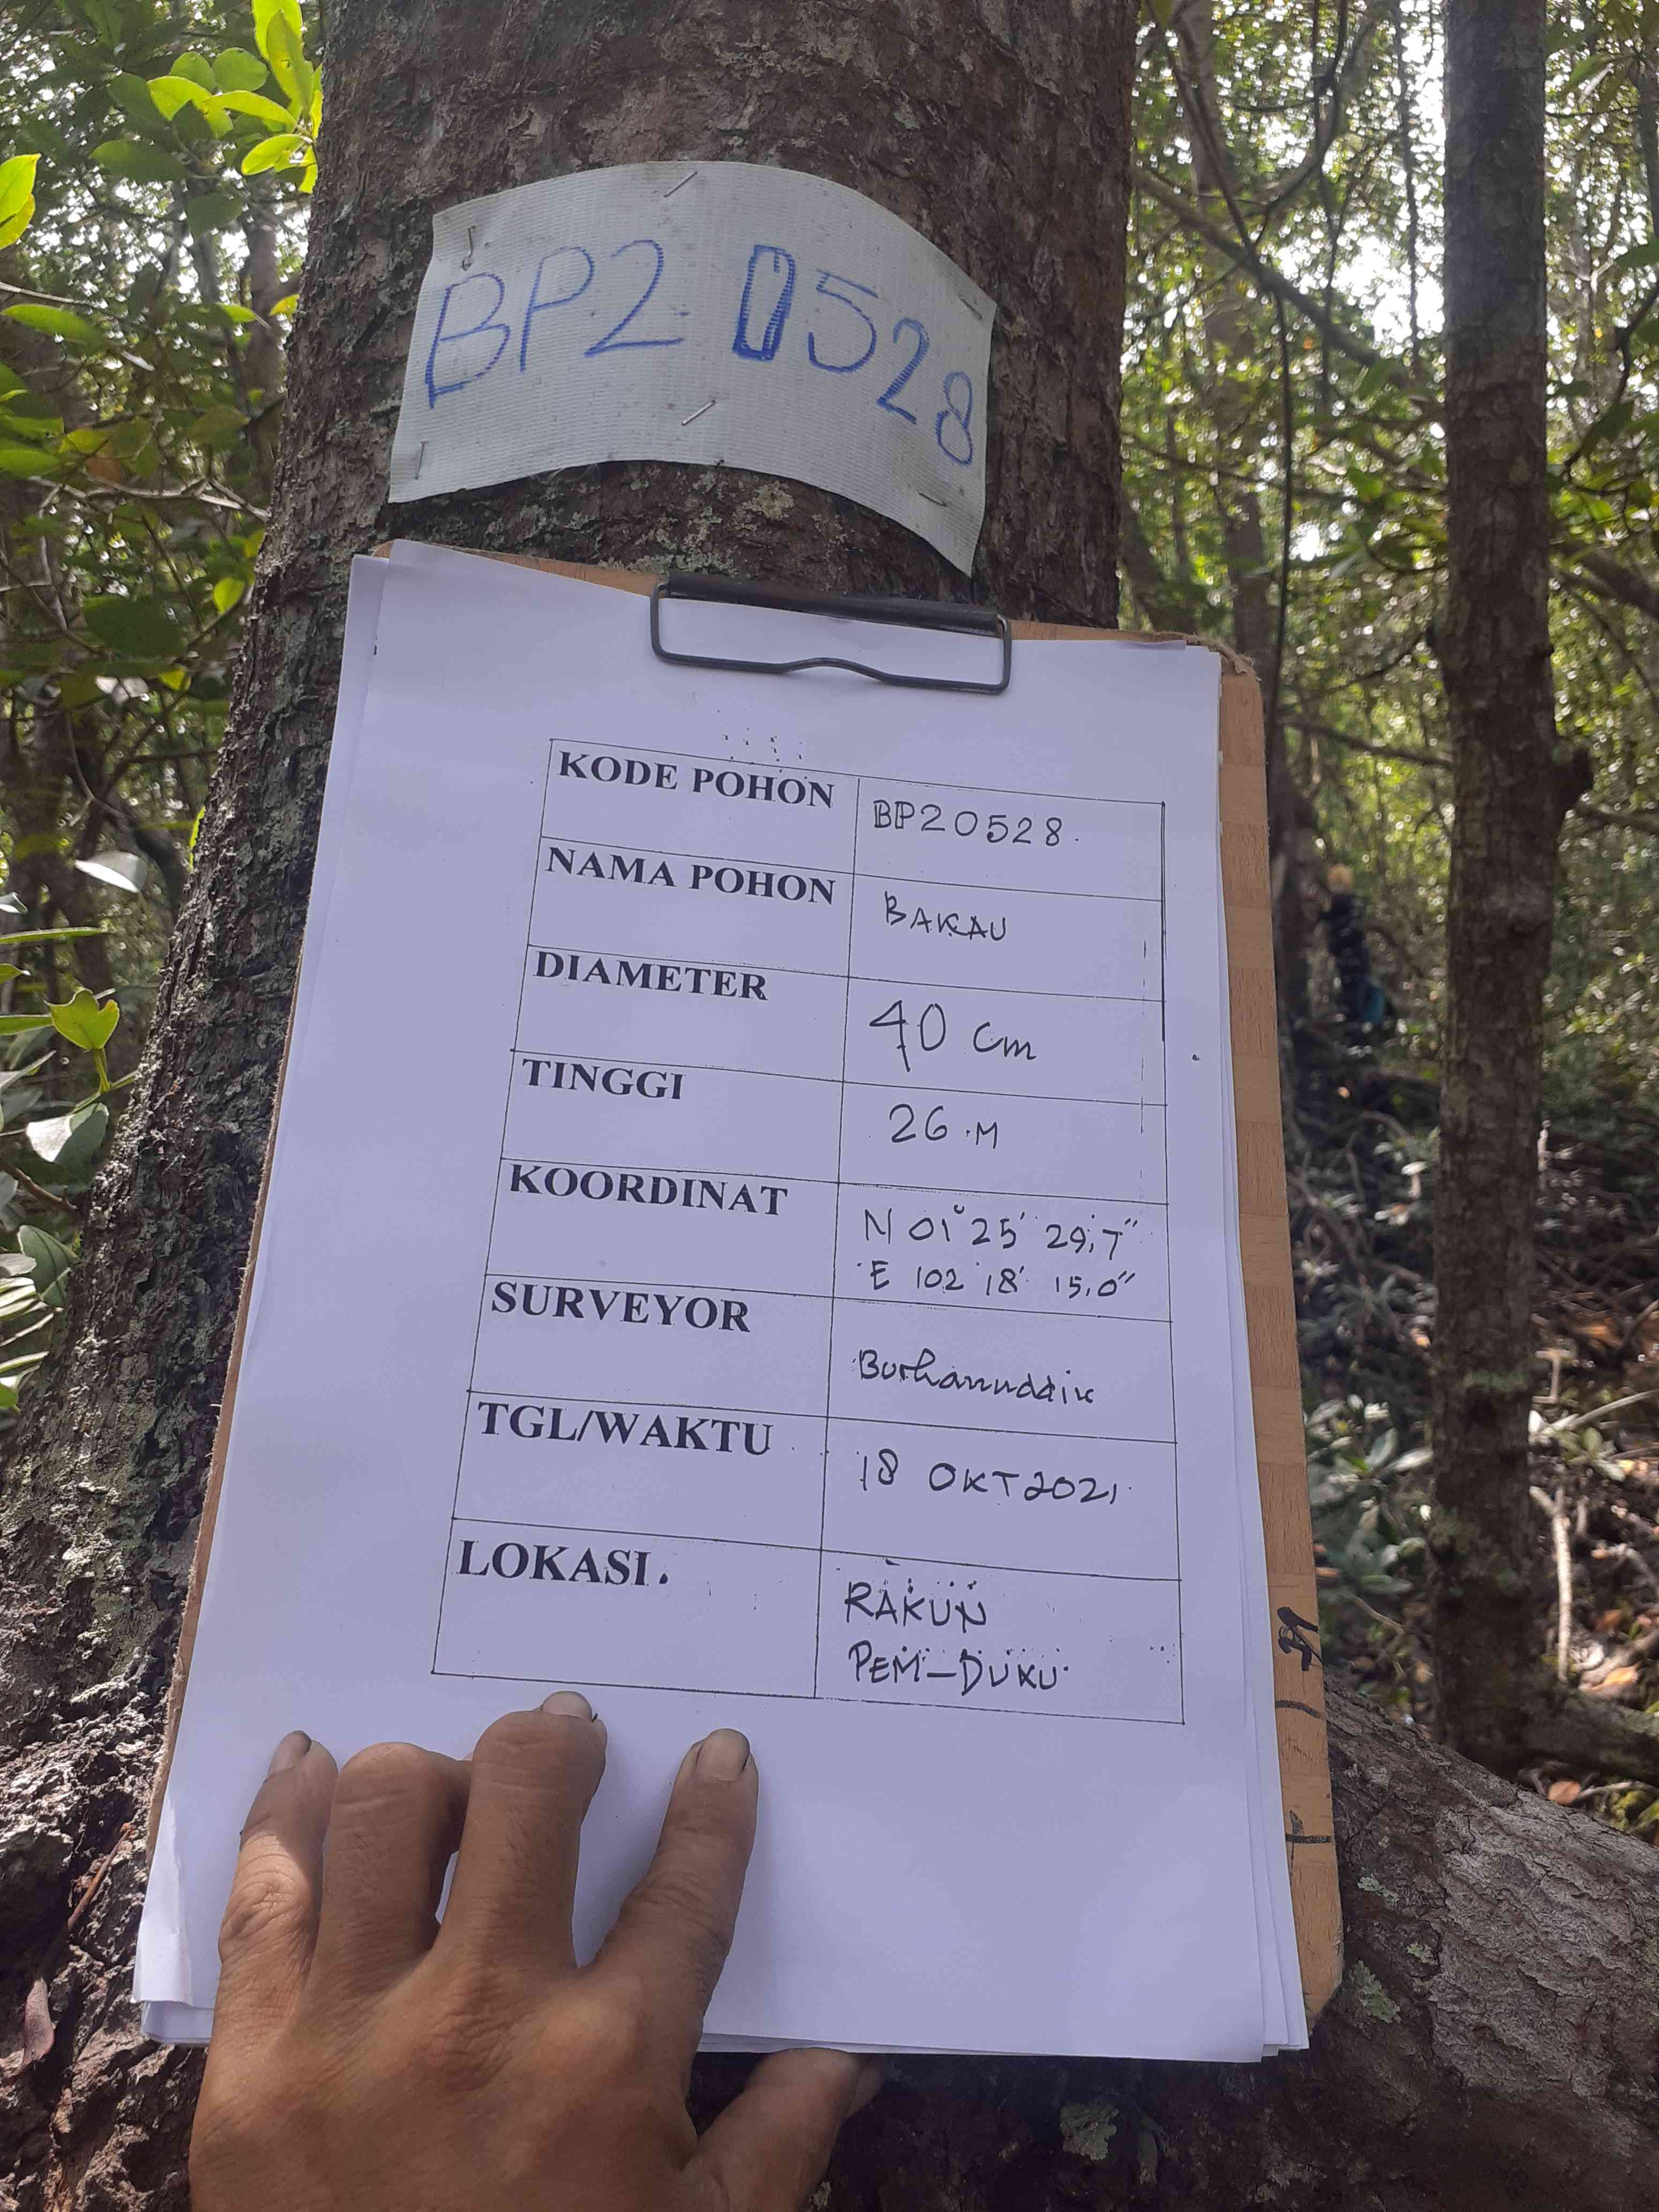 BP2 0528
KODE POHON BP20528.
NAMA POHON BAKAU
DIAMETER 40 cm
TINGGI 26 M
KOORDINAT N 01° 25' 29,7"
E 102 18' 15.0"
SURVEYOR Burhanuddin
TGL/WAKTU 18 OKT 2021
LOKASI. RAKUN
PEM-DUKU